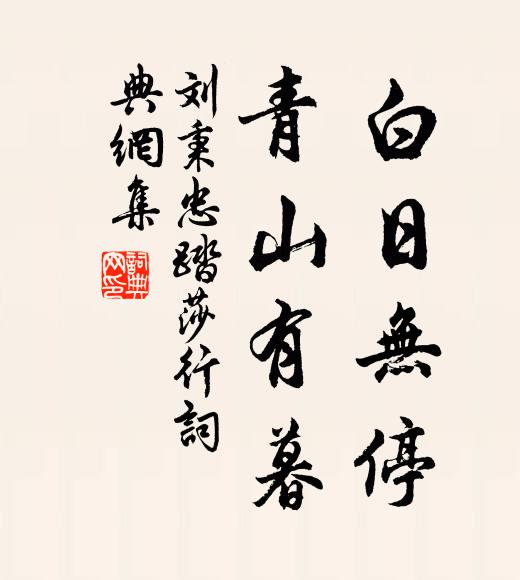 白日無停
青山有暮
刘秉忠踏莎行詞
典網集
詞典
网印